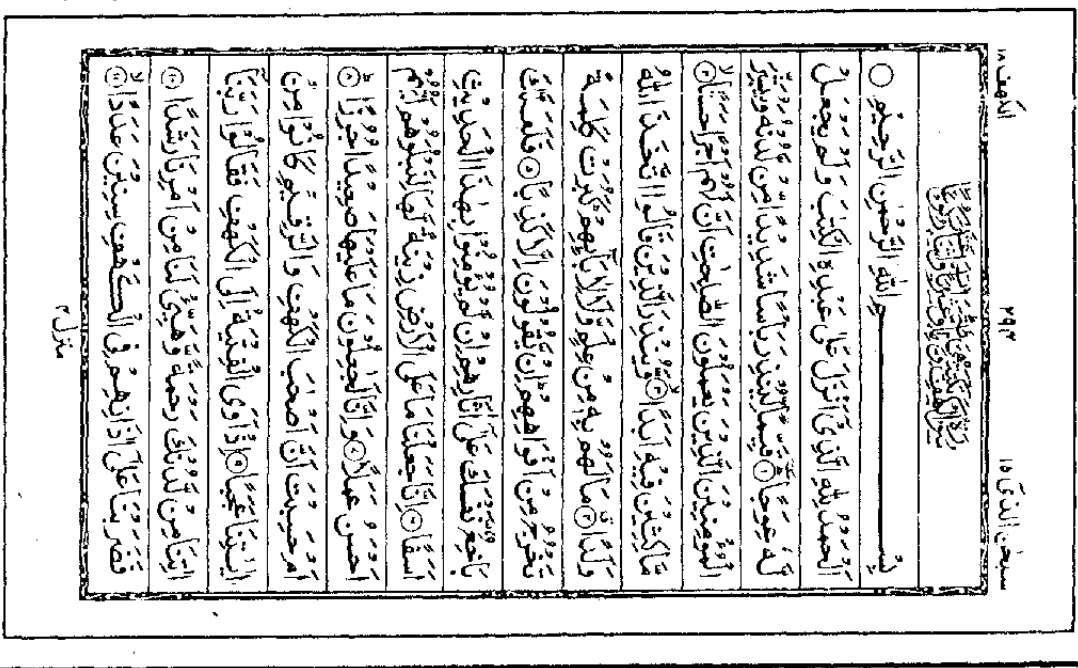 سبحٰن الذیٓ ۱۵
الکہف ۱۸
بِسْمِ اللهِ الرَّحْمٰنِ الرَّحِيْمِ ○
اَلْحَمْدُ لِلّٰهِ الَّذِيْٓ اَنْزَلَ عَلٰى عَبْدِهِ الْكِتٰبَ وَلَمْ يَجْعَلْ
لَّهٗ عِوَجًا ۜ ﴿۱﴾ قَيِّمًا لِّيُنْذِرَ بَاْسًا شَدِيْدًا مِّنْ لَّدُنْهُ وَيُبَشِّرَ
الْمُؤْمِنِيْنَ الَّذِيْنَ يَعْمَلُوْنَ الصّٰلِحٰتِ اَنَّ لَهُمْ اَجْرًا حَسَنًا ۙ﴿۲﴾
مَّاكِثِيْنَ فِيْهِ اَبَدًا ۙ﴿۳﴾ وَّيُنْذِرَ الَّذِيْنَ قَالُوا اتَّخَذَ اللّٰهُ
وَلَدًا ۗ﴿۴﴾ مَا لَهُمْ بِهٖ مِنْ عِلْمٍ وَّلَا لِاٰبَآئِهِمْ ؕ كَبُرَتْ كَلِمَةً
تَخْرُجُ مِنْ اَفْوَاهِهِمْ ؕ اِنْ يَّقُوْلُوْنَ اِلَّا كَذِبًا ﴿۵﴾ فَلَعَلَّكَ
بَاخِعٌ نَّفْسَكَ عَلٰٓى اٰثَارِهِمْ اِنْ لَّمْ يُؤْمِنُوْا بِهٰذَا الْحَدِيْثِ
اَسَفًا ﴿۶﴾ اِنَّا جَعَلْنَا مَا عَلَى الْاَرْضِ زِيْنَةً لَّهَا لِنَبْلُوَهُمْ اَيُّهُمْ
اَحْسَنُ عَمَلًا ﴿۷﴾ وَاِنَّا لَجٰعِلُوْنَ مَا عَلَيْهَا صَعِيْدًا جُرُزًا ؕ﴿۸﴾
اَمْ حَسِبْتَ اَنَّ اَصْحٰبَ الْكَهْفِ وَالرَّقِيْمِ كَانُوْا مِنْ
اٰيٰتِنَا عَجَبًا ﴿۹﴾ اِذْ اَوَى الْفِتْيَةُ اِلَى الْكَهْفِ فَقَالُوْا رَبَّنَآ
اٰتِنَا مِنْ لَّدُنْكَ رَحْمَةً وَّهَيِّئْ لَنَا مِنْ اَمْرِنَا رَشَدًا ﴿۱۰﴾
فَضَرَبْنَا عَلٰٓى اٰذَانِهِمْ فِي الْكَهْفِ سِنِيْنَ عَدَدًا ۙ﴿۱۱﴾
منزل ۴